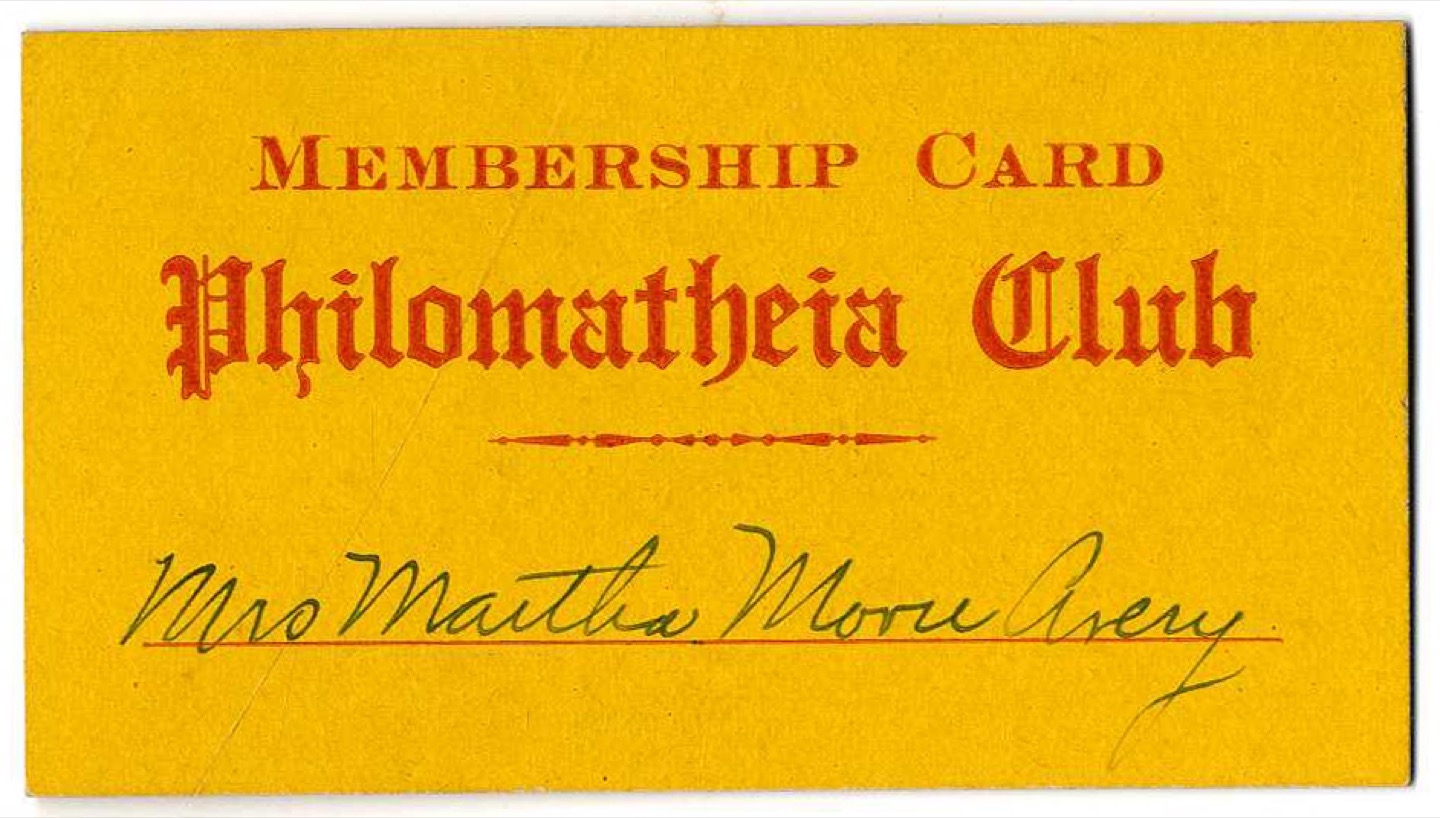 MEMBERSHIP CARD
Philomatheia Club
Mrs Martha Moore Avery